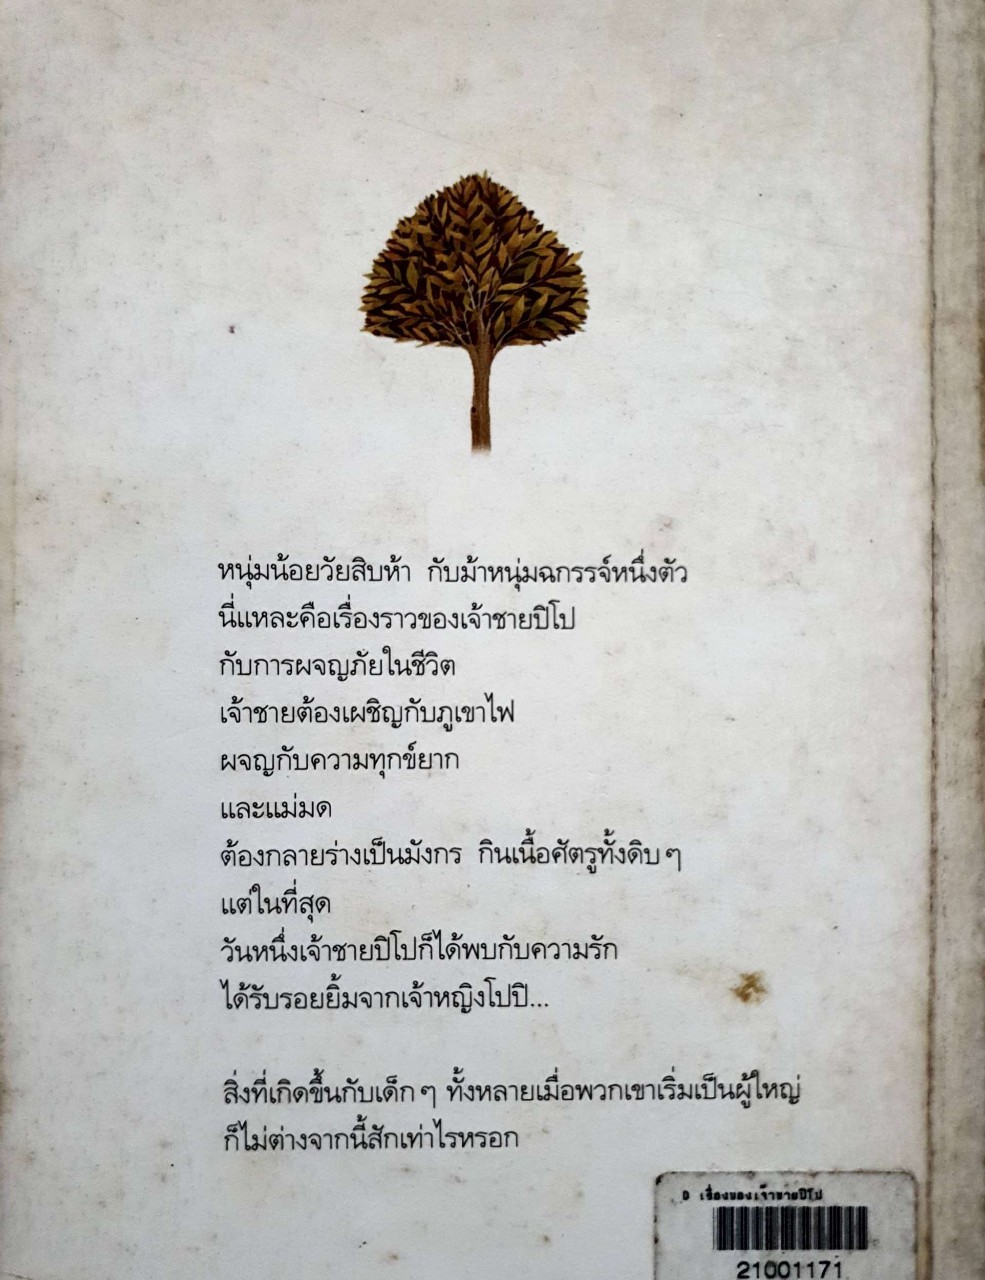 หนุ่มน้อยวัยสิบห้า กับม้าหนุ่มฉกรรจ์หนึ่งตัว
นี่แหละคือเรื่องราวของเจ้าชายปิโป
กับการผจญภัยในชีวิต
เจ้าชายต้องเผชิญกับภูเขาไฟ
ผจญกับความทุกข์ยาก
และแม่มด
ต้องกลายร่างเป็นมังกร กินเนื้อศัตรูทั้งดิบ ๆ
แต่ในที่สุด
วันหนึ่งเจ้าชายปิโปก็ได้พบกับความรัก
ได้รับรอยยิ้มจากเจ้าหญิงโปปิ...
สิ่งที่เกิดขึ้นกับเด็ก ๆ ทั้งหลายเมื่อพวกเขาเริ่มเป็นผู้ใหญ่
ก็ไม่ต่างจากนี้สักเท่าไรหรอก
เรื่องของเจ้าชายปิโป
21001171